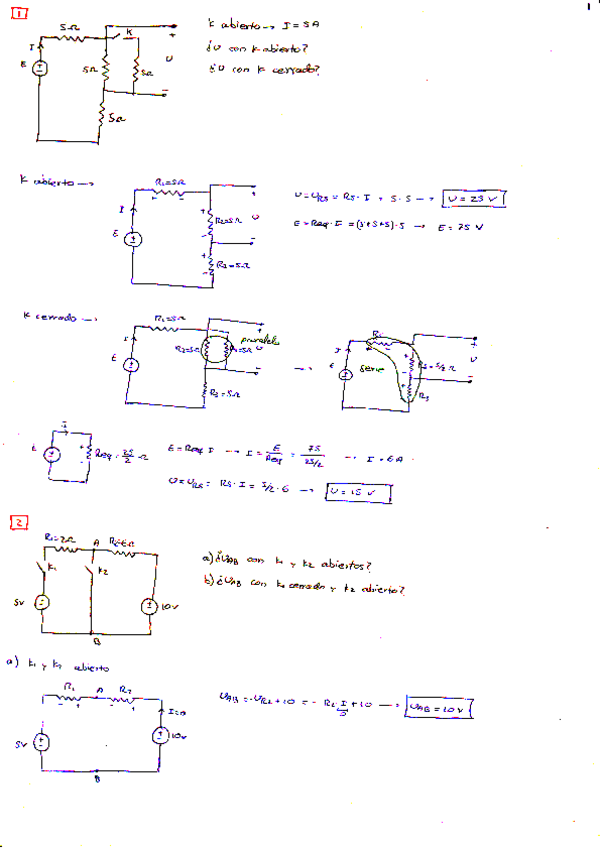 1
1
5Ω
K
I
E
5Ω
5Ω
5Ω
+
U
-
K abierto → I = 5A
¿U con K abierto?
¿U con K cerrado?
K abierto →
R₁=5Ω
I
E
R₂=5Ω
R₃=5Ω
U
E = Req · I = (5+5+5)·5 → E = 75 V
U = 25 V
K cerrado →
R₁=5Ω
I
E
paralelo
R₃=5Ω
U
serie
R₃
E
I
E = Req · I → I = E/Req = 75/(25/2) → I = 6 A
Req = 25/2 Ω
U = 15 V
2
R₁=2Ω
A
R₂=6Ω
K₁
K₂
5V
10V
B
a) ¿UAB con K₁ y K₂ abiertos?
b) ¿UAB con K₁ cerrado y K₂ abierto?
a) K₁ y K₂ abierto
R₁
A
R₂
I=0
5V
10V
B
UAB = -UR2 + 10 = - R₂ · I + 10 → UAB = 10V